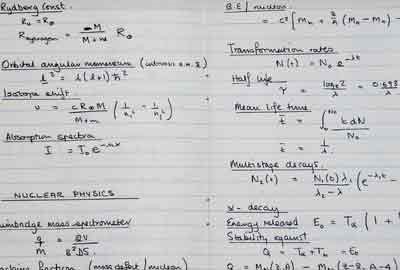 Rydberg Const.
R₀ = R∞
R_Hydrogen = M / (M + m) R∞
Orbital angular momentum
l² = l(l+1)ħ²
Isotope shift.
ν = cR∞M / (M+m) (1/n₁² - 1/n₂²)
Absorption spectra
I = I₀e
NUCLEAR PHYSICS
mass spectrometer
q/m = 2V / B²DS
fraction (mass defect/nucleon)
B.E/nucleon
= c² [Mₙ +
Transformation rates
N(t) = N₀ e^-λt
Half life
τ = logₑ2 / λ = 0.693
Mean life time
t̄ = ∫ t dN / N₀
t̄ = 1/λ
Multistage decays.
N₂(t) = N₁(0)λ₁ / (λ₂ - λ₁) (e^-λ₁t -
α-decay
Energy released E₀ = Tα (1 +
Stability against
Q = Tα + Tb = E₀